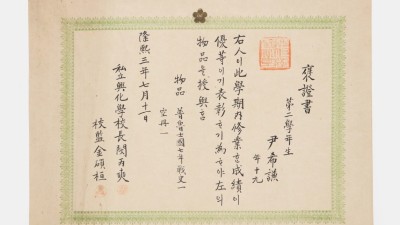 褒證書
第二學年生
尹希謙
年十九
右人이此學期內修業ᄒᆞᆫ成績이
優等이기表彰ᄒᆞ기爲ᄒᆞ야左의
物品을授與홈
物品
普魯士國七年戰史一
空冊一
隆熙三年七月十一日
私立興化學校長閔丙奭
校監金碩桓